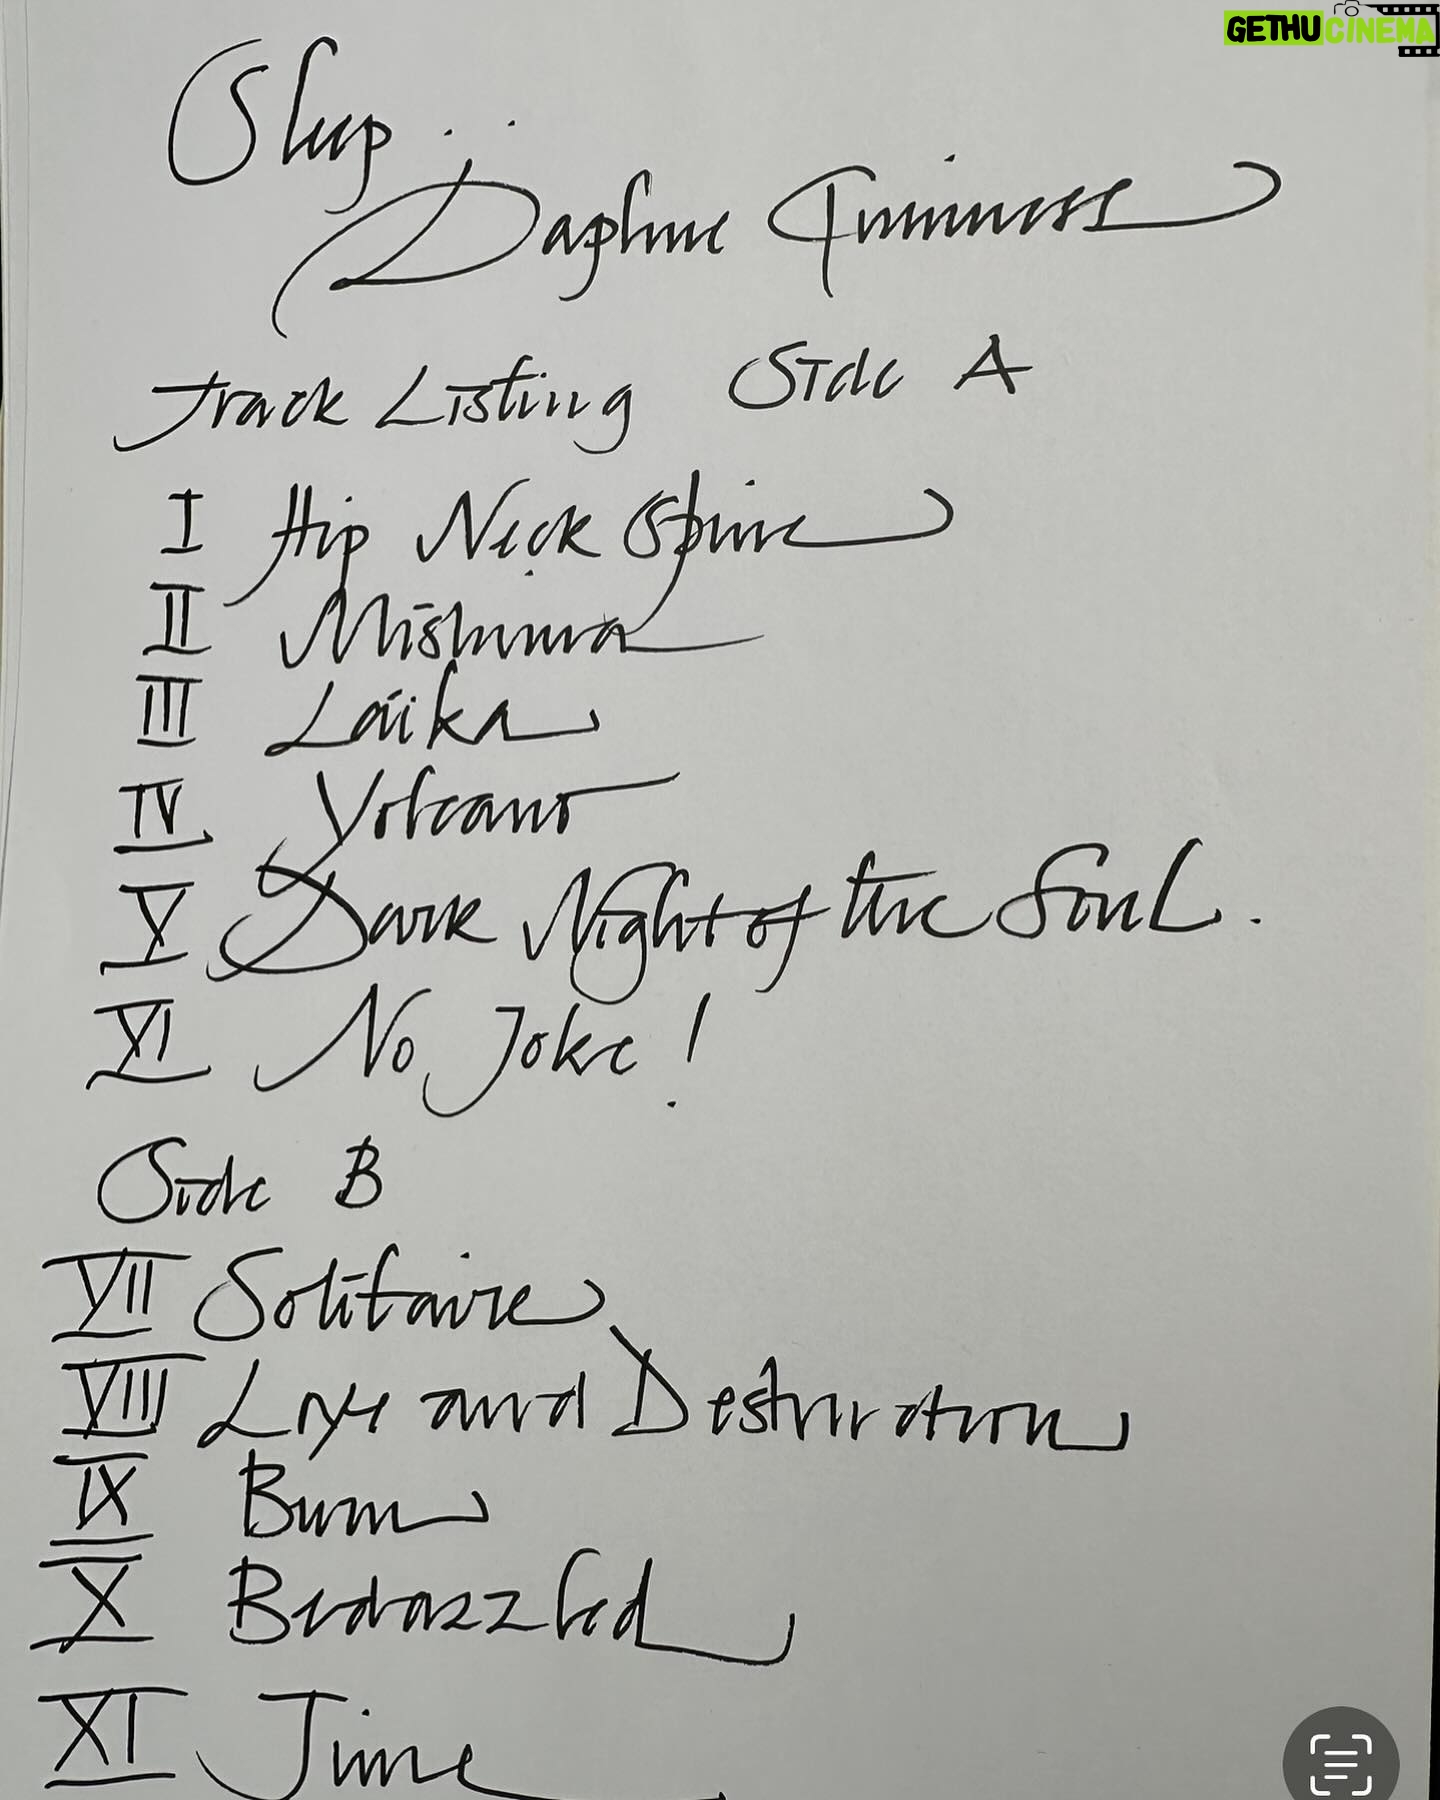 GETHUCINEMA
Sleep..
Daphne Guinness
Track Listing Side A
I Hip Neck Spine
II Mishima
III Laika
IV Volcano
V Dark Night of the Soul.
VI No Joke!
Side B
VII Solitaire
VIII Love and Destruction
IX Burn
X Bedazzled
XI Time